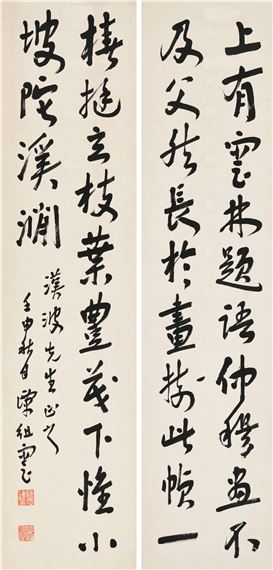 上有雲林題語仲穆畫不
及父然長於畫樹此幀一
椿挺立枝葉豐茂下惟小
坡陀溪澗
漢波先生正之
壬申秋日譚組雲